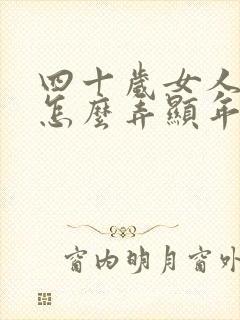 四十歲女人
怎麼弄顯年
窗內明月窗外